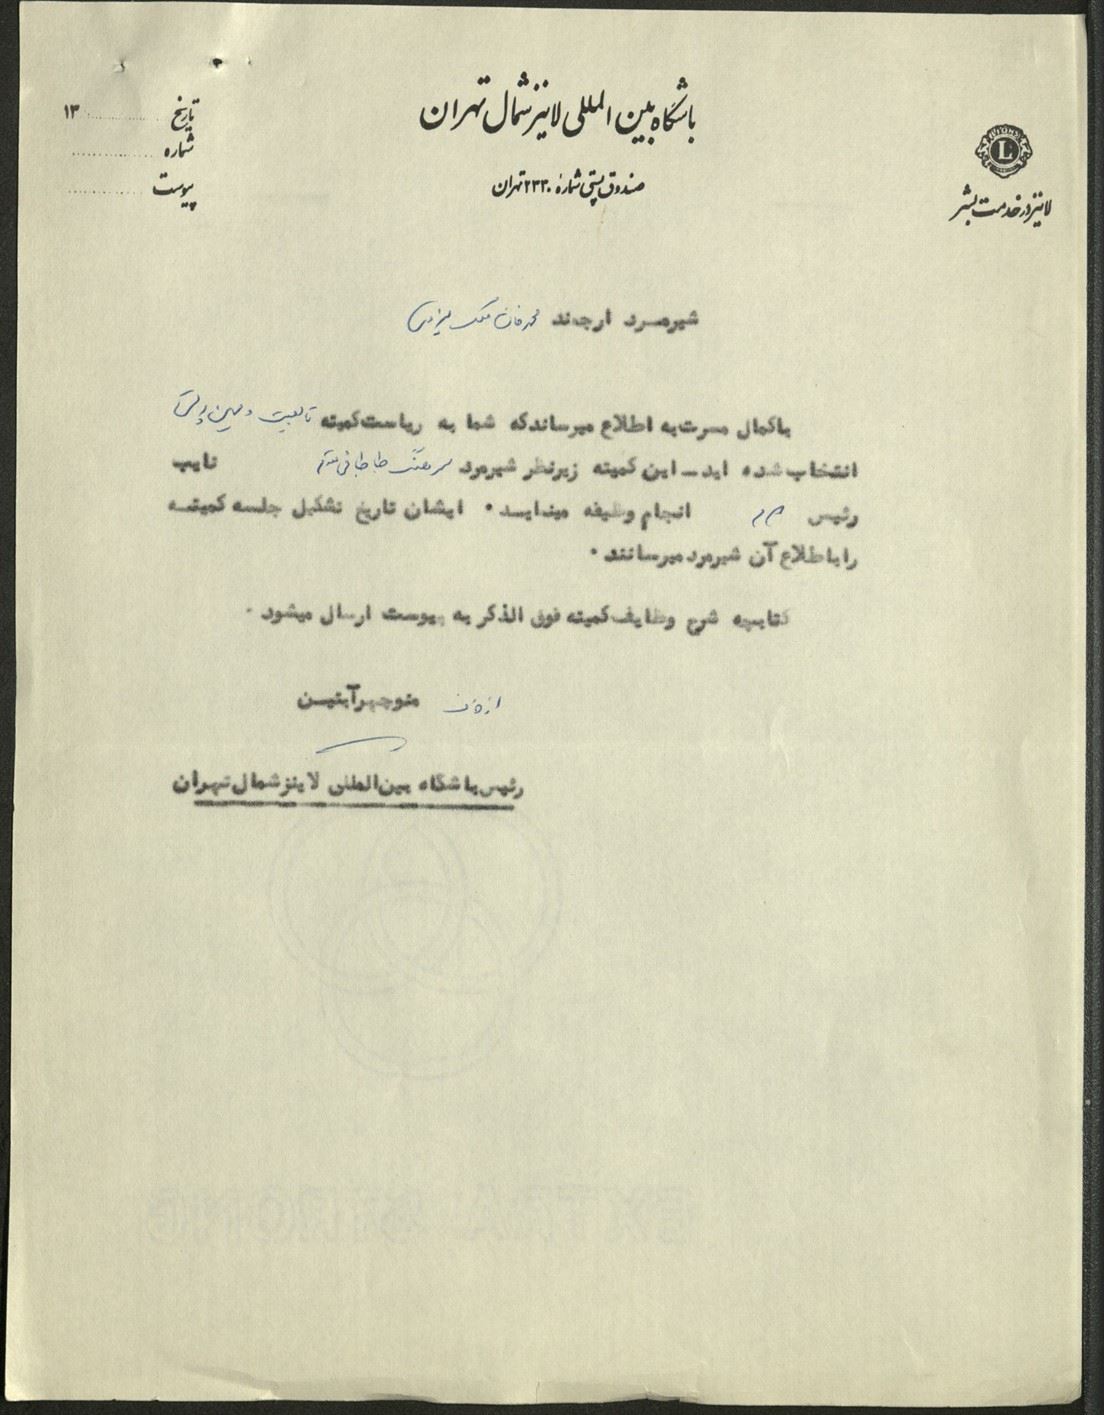 باشگاه بین المللی لاینز شمال تهران
صندوق پستی شماره ۲۳۳۰ تهران
L
لاینز در خدمت بشر
تاریخ ............ ۱۳
شماره ............
پیوست ............
شیرمرد ارجمند محمد خان ملک یزدی
باکمال مسرت به اطلاع میرساندکه شما به ریاست کمیته تابعیت و میهن پرستی
انتخاب شده اید ـ این کمیته زیرنظر شیرمرد سرهنگ طباطبائی نایب
رئیس انجام وظیفه مینماید ۰ ایشان تاریخ تشکیل جلسه کمیتـه
را باطلاع آن شیرمرد میرسانند ۰
کتابچه شرح وظایف کمیته فوق الذکر به پیوست ارسال میشود ۰
از طرف منوچهر آبتیـن
رئیس باشگاه بین المللی لاینز شمال تهران
EXTRA STRONG